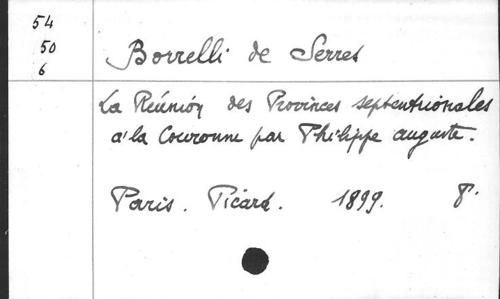 54
50
6
Borrelli de Serres
La Réunion des Provinces septentrionales
à la Couronne par Philippe auguste.
Paris. Picard. 1899. 8º.